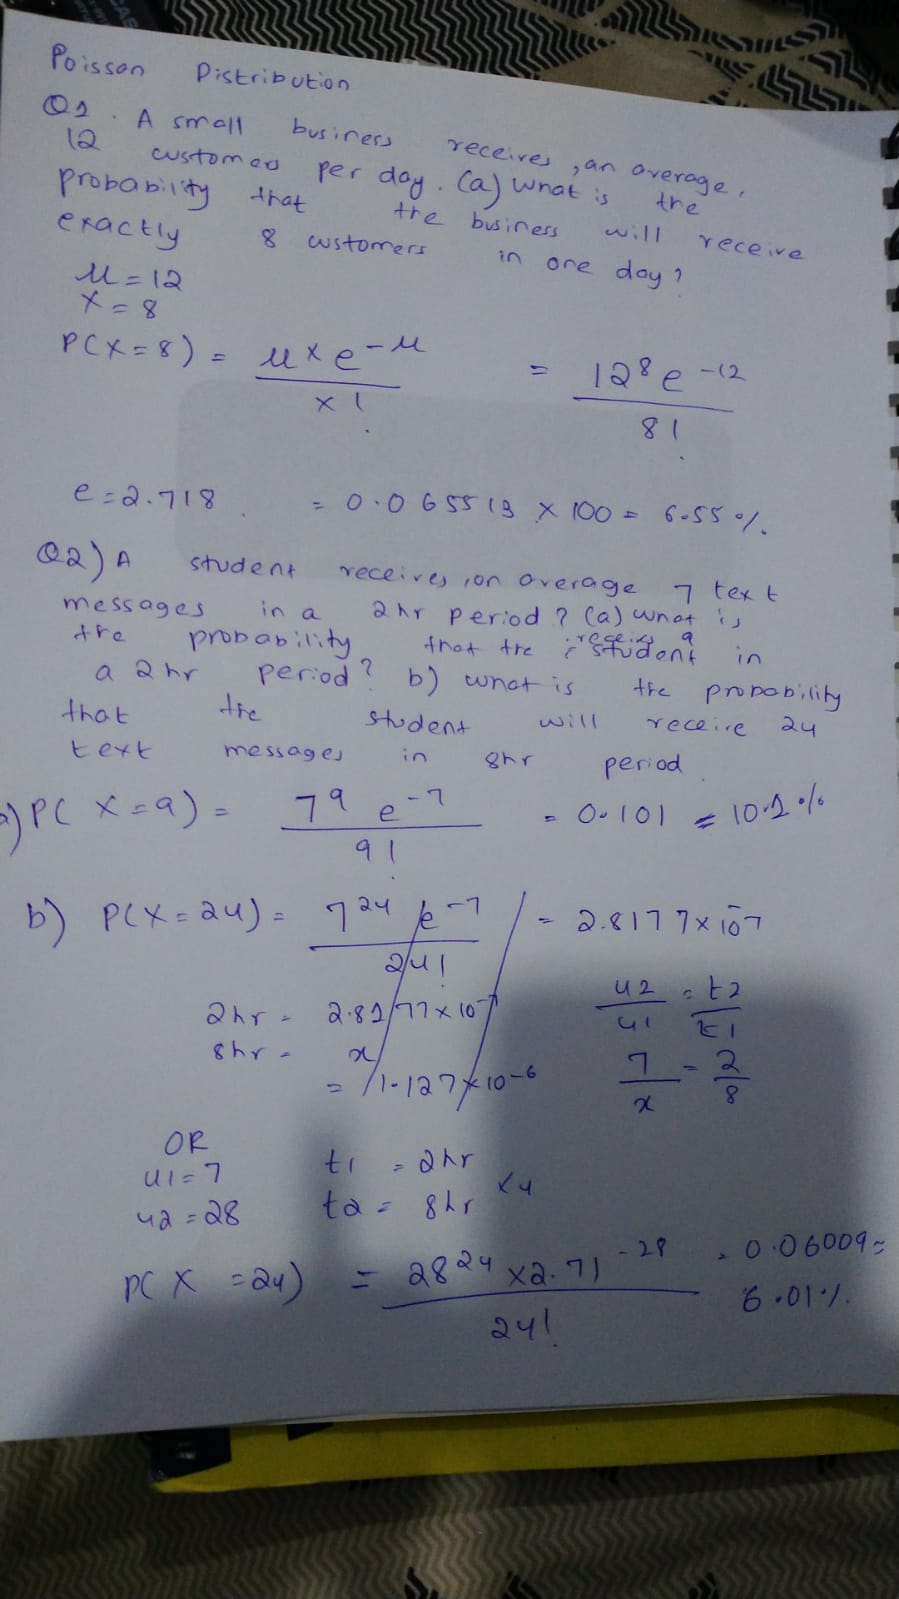 Poisson Distribution
Q1. A small business receives, an average,
12 customers per day. (a) what is the
probability that the business will receive
exactly 8 customers in one day?
μ = 12
x = 8
P(X=8) = μ^x e^-μ / x! = 12^8 e^-12 / 8!
e = 2.718 = 0.065513 × 100 = 6.55%
Q2) A student receives, on average 7 text
messages in a 2hr period? (a) what is
the probability that the student receives 9 in
a 2hr period? b) what is the probability
that the student will receive 24
text messages in 8hr period
a) P(X=9) = 7^9 e^-7 / 9! = 0.101 = 10.1%
b) P(X=24) = 7^24 e^-7 / 24! = 2.8177×10^-7
2hr = 2.8177×10^-7
8hr = x
= 1.127×10^-6
u2/u1 = t2/t1
7/x = 2/8
OR
u1=7 t1 = 2hr
u2=28 t2 = 8hr ×4
P(X=24) = 28^24 ×2.71^-28 / 24! = 0.06009=
6.01%